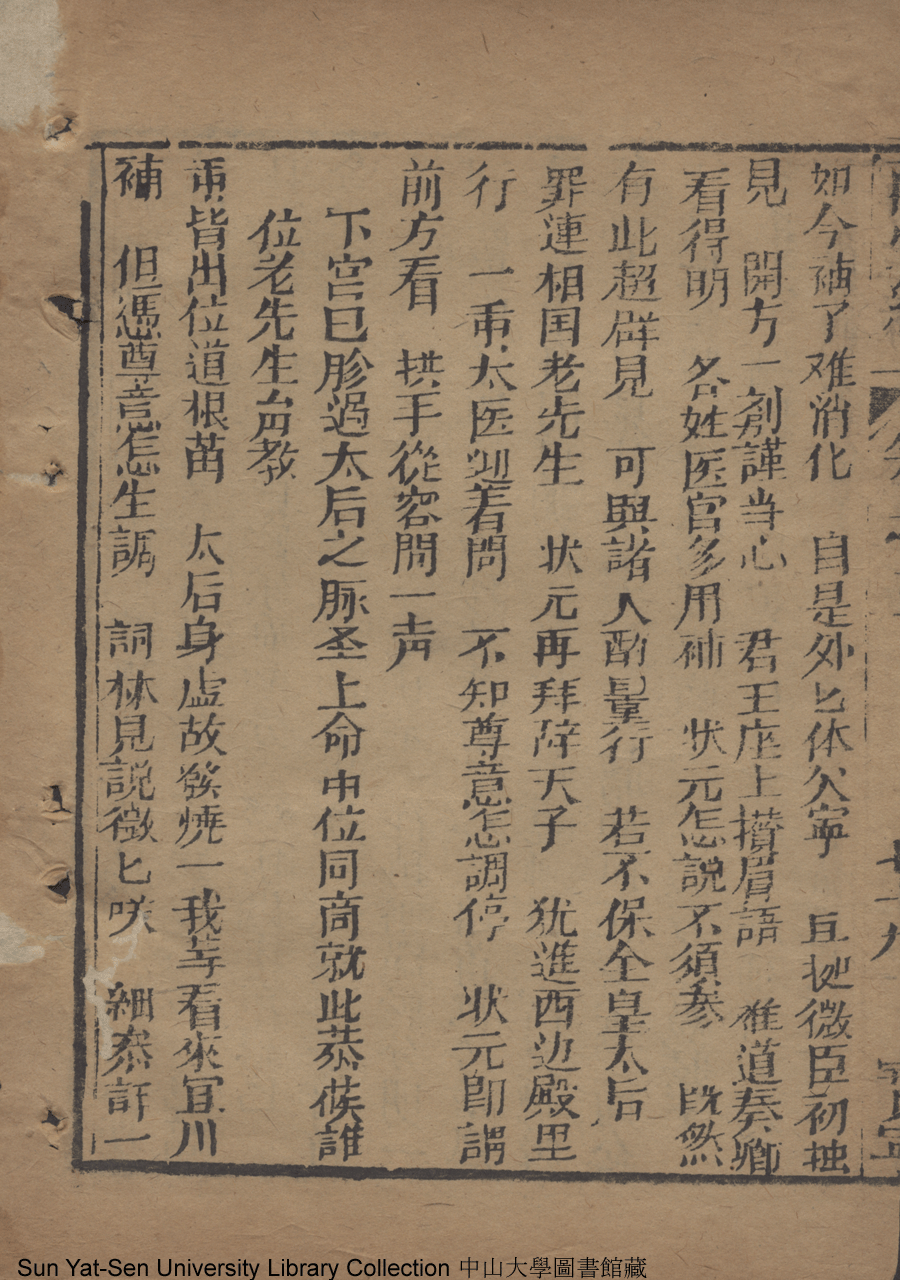 如今補了难消化　自是外匕体欠寧　且把微臣初拙
見　開方一剂謹当心　君王座上攢眉語　难道奏卿
看得明　名姓医官多用補　状元怎説不須参　既然
有此超群見　可與諸人酌量行　若不保全皇太后
罪連相国老先生　状元再拜辞天子　犹進西边殿里
行　一甫太医迎着問　不知尊意怎調停　状元即謂
前方看　拱手從容問一声
下官已胗過太后之脈圣上命申位同商就此恭候誰
位老先生台教
甫皆出位道根苗　太后身虚故發燒　我等看來宜川
補　但憑尊意怎生調　詞林見説微匕咲　細泰訐一